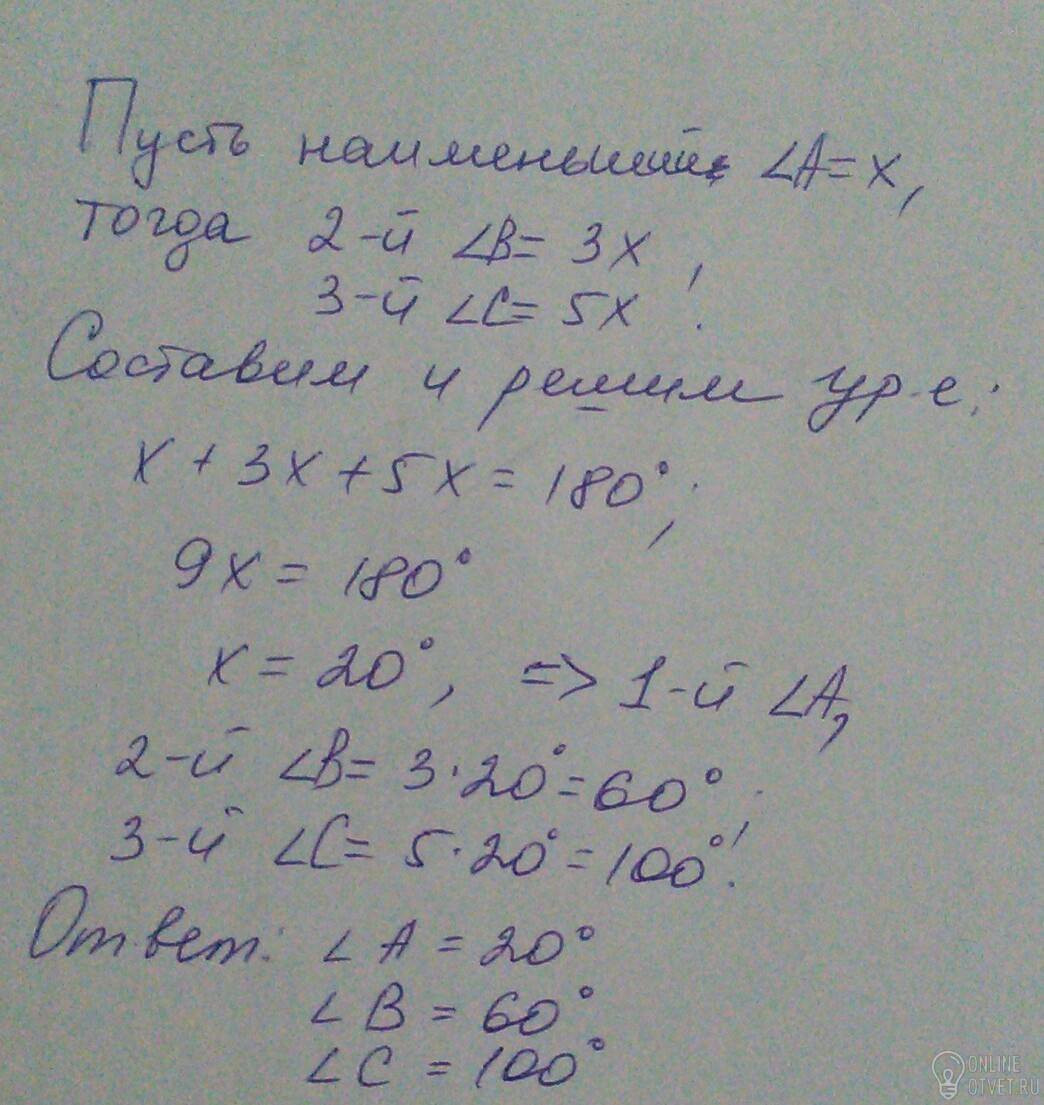 Пусть наименьший ∠A = x,
тогда 2-й ∠B = 3x,
3-й ∠C = 5x.
Составим и решим ур-е:
x + 3x + 5x = 180°;
9x = 180°
x = 20°, => 1-й ∠A,
2-й ∠B = 3·20° = 60°,
3-й ∠C = 5·20° = 100°.
Ответ: ∠A = 20°
∠B = 60°
∠C = 100°
ONLINE
OTVET.RU